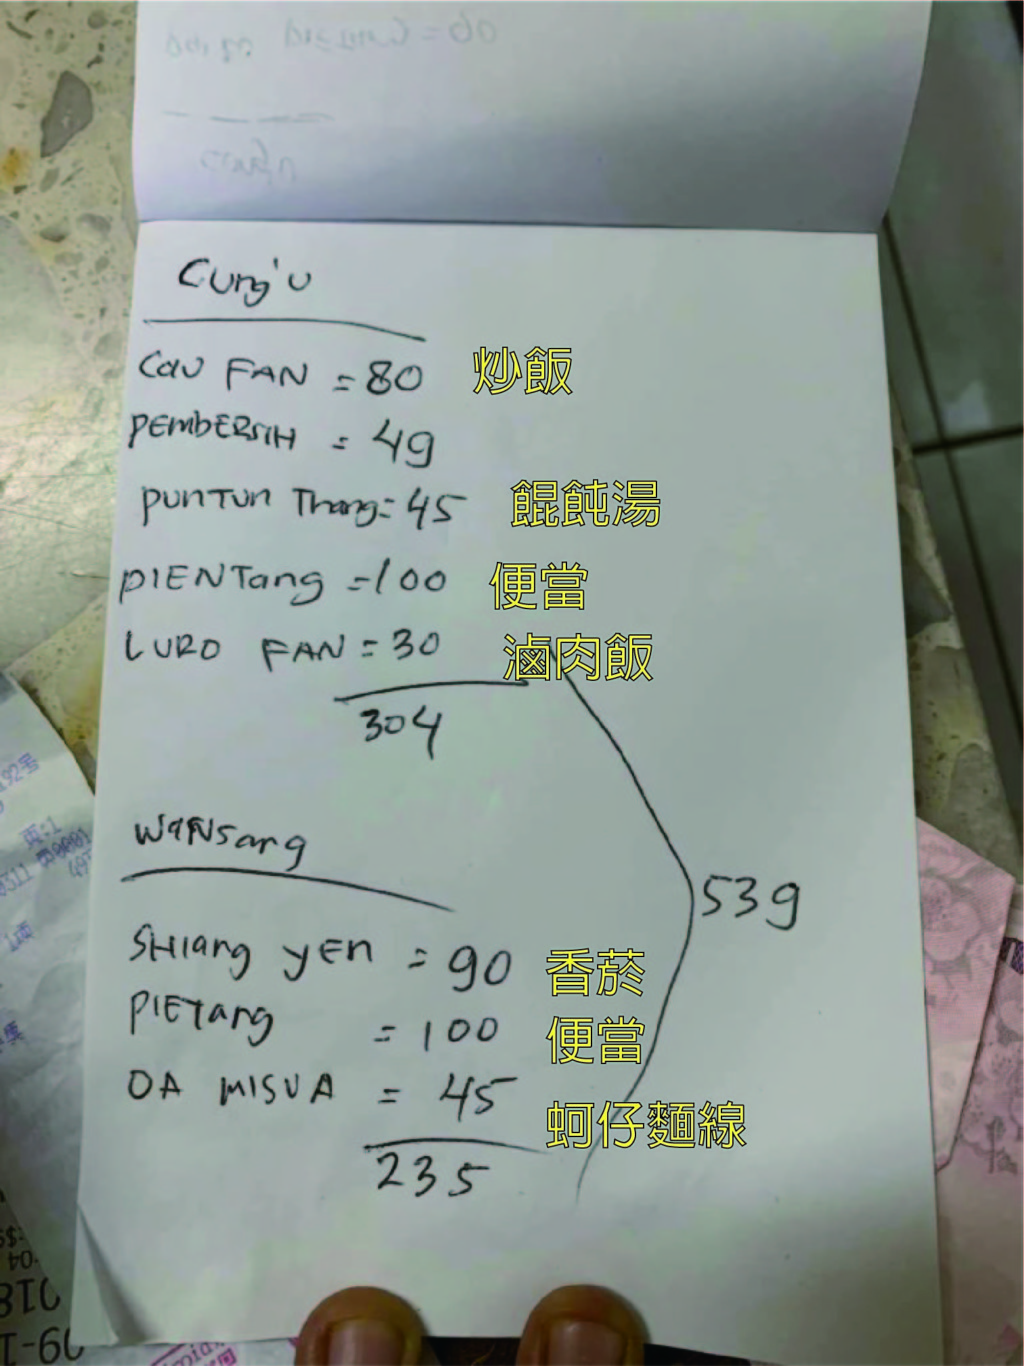 Cung'u
CAU FAN = 80 炒飯
PEMBERSIH = 49
PUNTUN Thang = 45 餛飩湯
PIENTang = 100 便當
LURO FAN = 30 滷肉飯
304
WANSang
539
SHIang YEN = 90 香菸
PIETang = 100 便當
OA MISUA = 45 蚵仔麵線
235